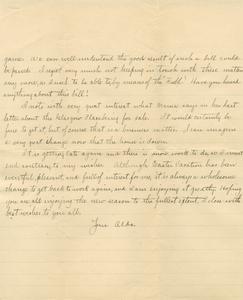 game. We can well understand the good result of such a bill could
be made. I regret very much not keeping in touch with these matters
any more, as I used to be able to by means of the "Field". Have you heard
anything about this bill?
I note with very great interest what Mernie says in her last
letter about the Glasgow Hamburg for sale. It would certainly be
fine to get it but of course that is a business matter. I can imagine
a very great change now that the home is down.
It is getting late again and there is more work to do so I must
not continue to my wishes. Although Easter Vacation has been
eventful, pleasant, and full of interest for me, it is always a wholesome
change to get back to work again, and I am enjoying it greatly. Hoping
you are all enjoying the new season to the fullest extent, I close with
best wishes to you all.
Your Aldo.